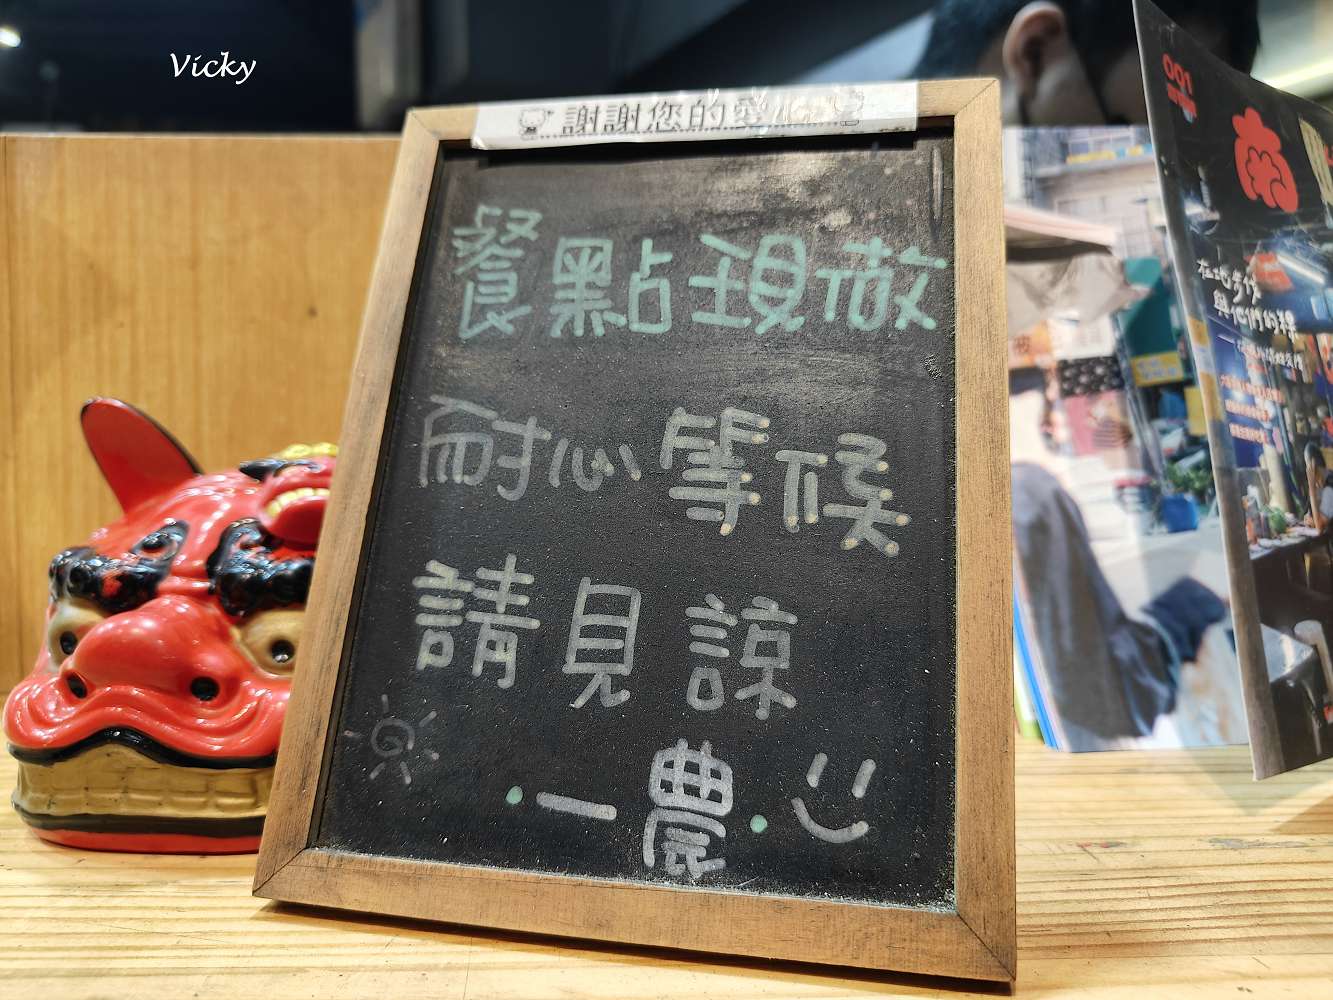 Vicky
謝謝您的愛
餐點現做
耐心等候
請見諒
·一農·
001
在地身後
與他們的祿